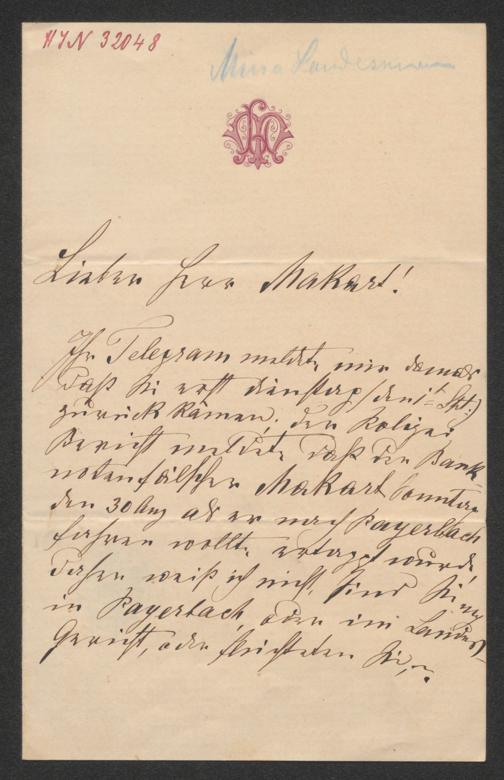 HIN 32048
Minna Landesmann
Lieber Herr Makart!
Ihr Telegram meldete mir damals
Daß Sie erst Dienstag (den 1t Spt.)
zurück kämen, der Polizei
Bericht meldete daß der Bank-
notenfälscher Makart Sonntag
den 30 Aug als er nach Payerbach
fahren wollte ertappt wurde,
daher weiß ich nicht, sind Sie
in Payerbach, oder im Landes-
Gericht, oder flüchteten Sie,